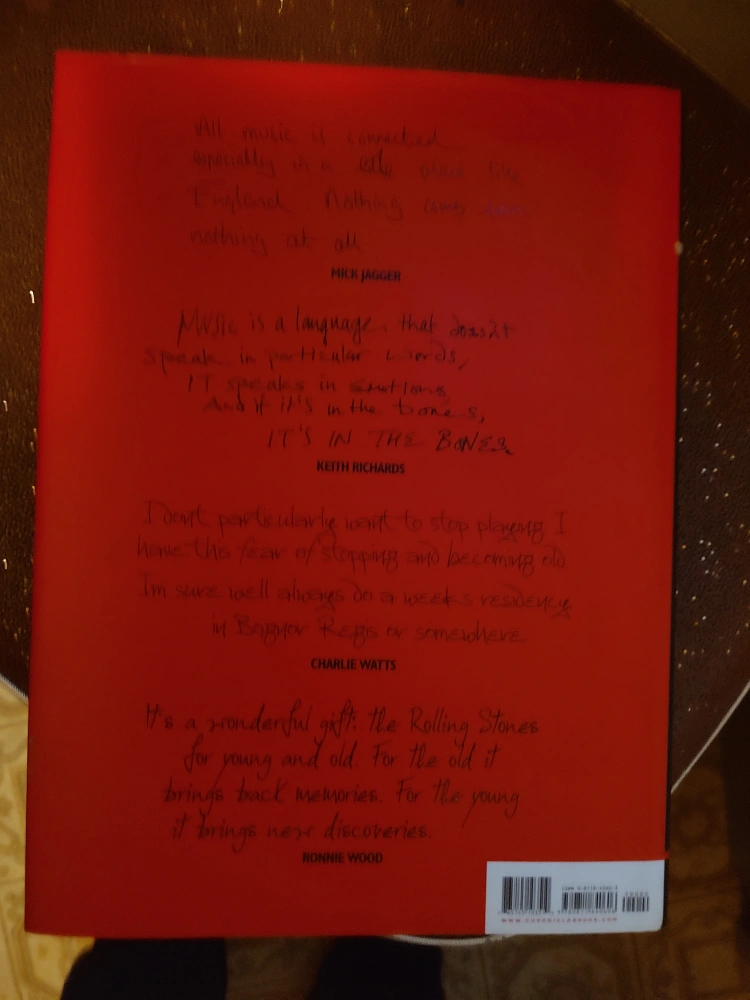 All music is connected
especially in a little place like
England. Nothing comes from
nothing at all
MICK JAGGER
Music is a language that doesn't
speak in particular words,
IT speaks in emotions
And if it's in the bones,
IT'S IN THE BONES.
KEITH RICHARDS
I dont particularly want to stop playing I
have this fear of stopping and becoming old
Im sure well always do a weeks residency
in Bognor Regis or somewhere
CHARLIE WATTS
It's a wonderful gift: the Rolling Stones
for young and old. For the old it
brings back memories. For the young
it brings new discoveries.
RONNIE WOOD
WWW.CHRONICLEBOOKS.COM